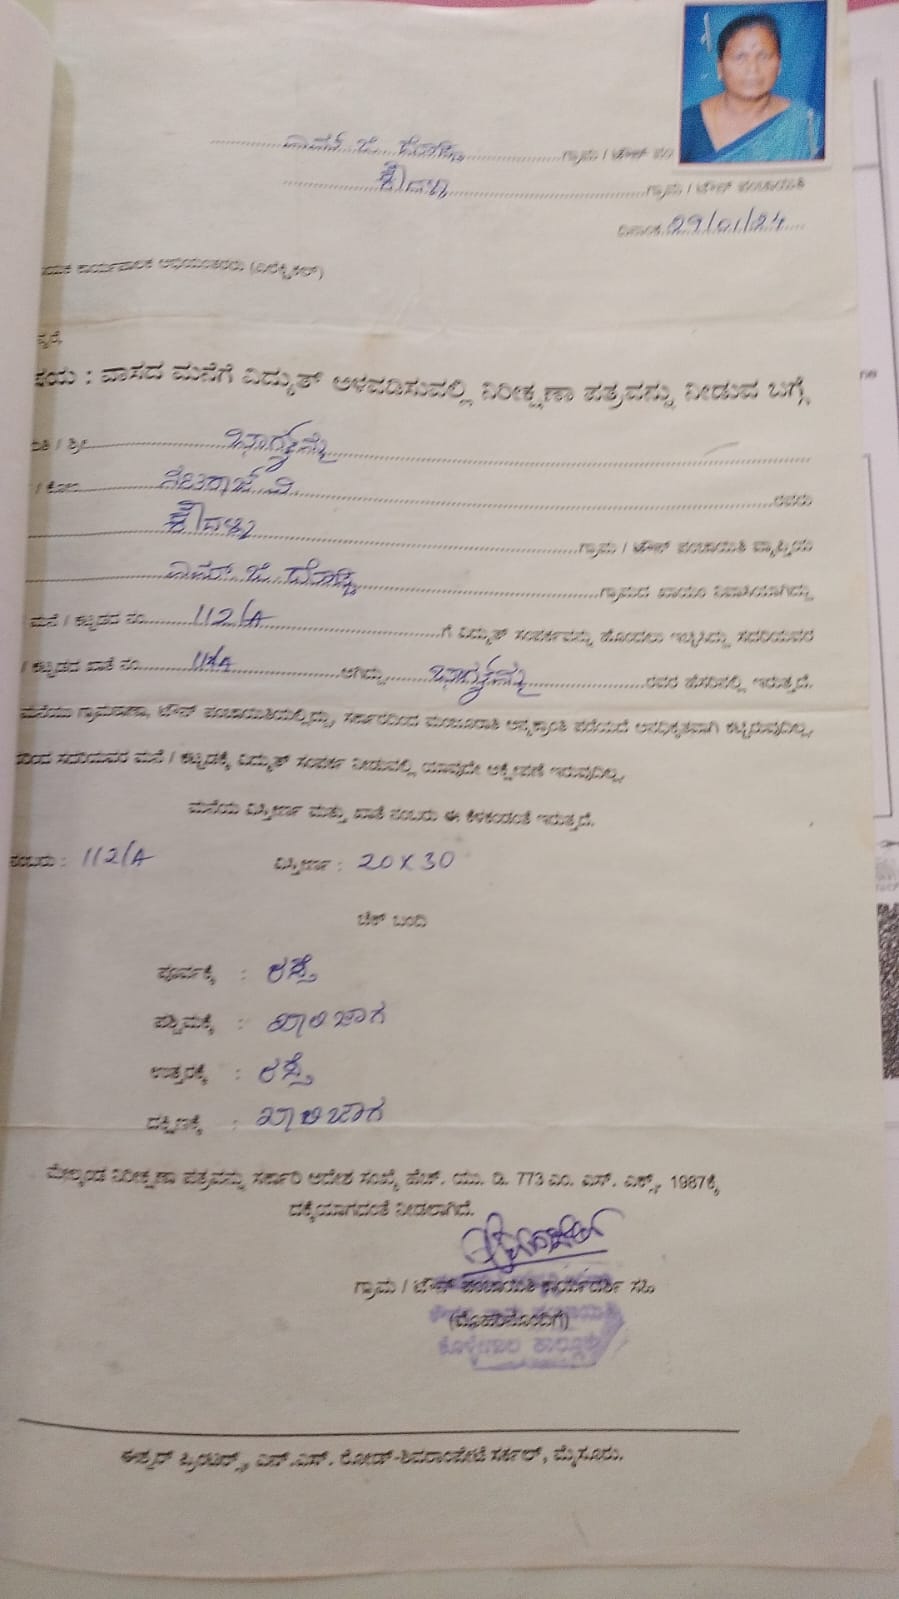 ಗ್ರಾಮ / ಟೌನ್ ಪಂ
ಗ್ರಾಮ / ಟೌನ್ ಪಂಚಾಯಿತಿ
ದಿನಾಂಕ 29/01/24
ಯಕ ಕಾರ್ಯಪಾಲಕ ಅಭಿಯಂತರರು (ಎಲೆಕ್ಟ್ರಿಕಲ್)
ನ್ಯರೆ,
ಷಯ : ವಾಸದ ಮನೆಗೆ ವಿದ್ಯುತ್ ಅಳವಡಿಸುವಲ್ಲಿ ನಿರೀಕ್ಷಣಾ ಪತ್ರವನ್ನು ನೀಡುವ ಬಗ್ಗೆ
ಮತಿ / ಶ್ರೀ ಭಾಗ್ಯಮ್ಮ
/ ಕೋಂ ನಟರಾಜ್ ವಿ ರವರು
ಗ್ರಾಮ / ಟೌನ್ ಪಂಚಾಯಿತಿ ವ್ಯಾಪ್ತಿಯ
ಗ್ರಾಮದ ಖಾಯಂ ನಿವಾಸಿಯಾಗಿದ್ದು
ಮನೆ / ಕಟ್ಟಡದ ನಂ. 112/A ಗೆ ವಿದ್ಯುತ್ ಸಂಪರ್ಕವನ್ನು ಹೊಂದಲು ಇಚ್ಛಿಸಿದ್ದು ಸದರಿಯವರ
/ ಕಟ್ಟಡದ ಖಾತೆ ನಂ. ಆಗಿದ್ದು, ಭಾಗ್ಯಮ್ಮ ರವರ ಹೆಸರಿನಲ್ಲಿ ಇರುತ್ತದೆ.
ಮನೆಯು ಗ್ರಾಮಠಾಣಾ, ಟೌನ್ ಪಂಚಾಯಿತಿಯಲ್ಲಿದ್ದು, ಸರ್ಕಾರದಿಂದ ಮಂಜೂರಾತಿ ಅನ್ಯಕ್ರಾಂತಿ ಪಡೆಯದೆ ಅನಧಿಕೃತವಾಗಿ ಕಟ್ಟಿರುವುದಿಲ್ಲ,
ಸದರಿಯವರ ಮನೆ / ಕಟ್ಟಡಕ್ಕೆ ವಿದ್ಯುತ್ ಸಂಪರ್ಕ ನೀಡುವಲ್ಲಿ ಯಾವುದೇ ಆಕ್ಷೇಪಣೆ ಇರುವುದಿಲ್ಲ.
ಮನೆಯ ವಿಸ್ತೀರ್ಣ ಮತ್ತು ಖಾತೆ ನಂಬರು ಈ ಕೆಳಕಂಡಂತೆ ಇರುತ್ತದೆ.
ನಂಬರು : 112/A ವಿಸ್ತೀರ್ಣ : 20 X 30
ಚೆಕ್ ಬಂದಿ
ಪೂರ್ವಕ್ಕೆ : ರಸ್ತೆ
ಪಶ್ಚಿಮಕ್ಕೆ : ಖಾಲಿ ಜಾಗ
ಉತ್ತರಕ್ಕೆ : ರಸ್ತೆ
ದಕ್ಷಿಣಕ್ಕೆ : ಖಾಲಿ ಜಾಗ
ಮೇಲ್ಕಂಡ ನಿರೀಕ್ಷಣಾ ಪತ್ರವನ್ನು ಸರ್ಕಾರಿ ಆದೇಶ ಸಂಖ್ಯೆ ಹೆಚ್. ಯು. ಡಿ. 773 ಎಂ. ಎಸ್. ಎಕ್ಸ್. 1987ಕ್ಕೆ
ದಕ್ಕೆಯಾಗದಂತೆ ನೀಡಲಾಗಿದೆ.
ಗ್ರಾಮ / ಟೌನ್ ಪಂಚಾಯಿತಿ ಕಾರ್ಯದರ್ಶಿ ಸಹಿ
(ಮೊಹರಿನೊಂದಿಗೆ)
ಕೊಳ್ಳೇಗಾಲ ತಾಲ್ಲೂಕು
ಈಶ್ವರ್ ಪ್ರಿಂಟರ್ಸ್, ಎನ್.ಎಸ್. ರೋಡ್-ಶಿವರಾಂಪೇಟೆ ಸರ್ಕಲ್, ಮೈಸೂರು.